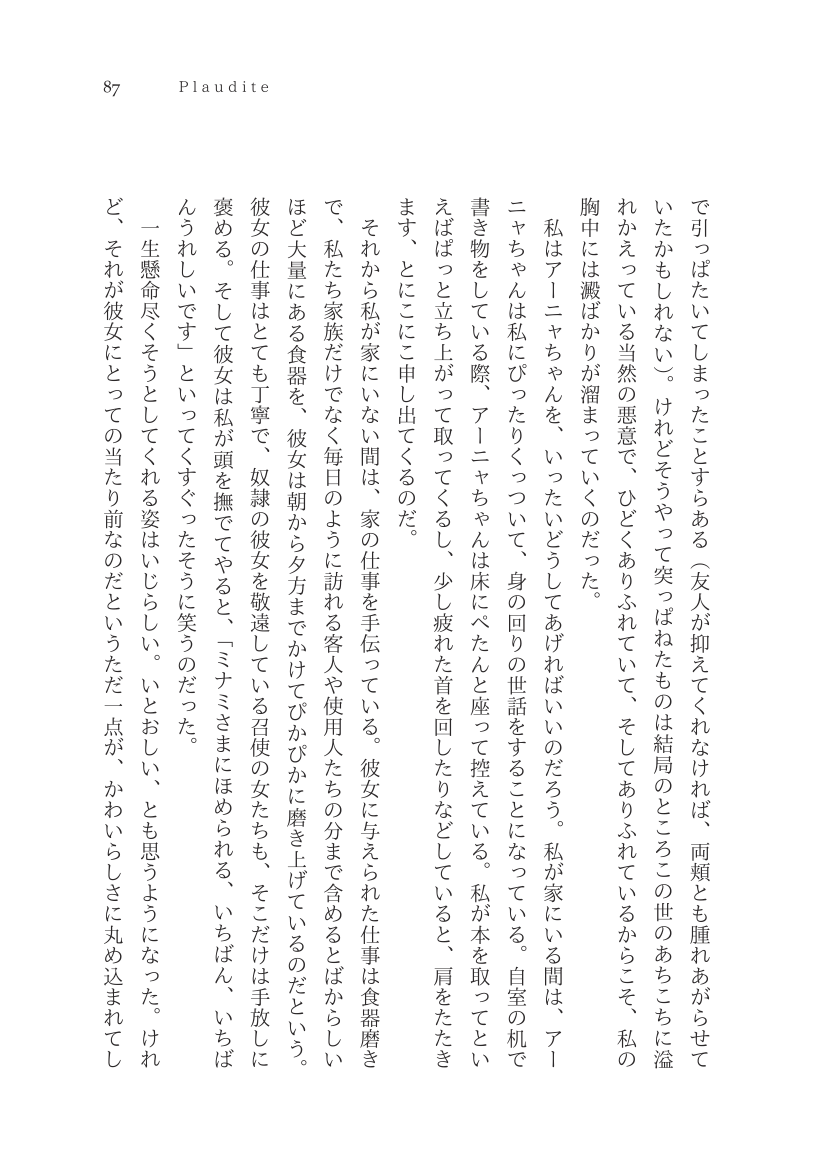 87 Plaudite
で引っぱたいてしまったことすらある（友人が抑えてくれなければ、両頬とも腫れあがらせて
いたかもしれない）。けれどそうやって突っぱねたものは結局のところこの世のあちこちに溢
れかえっている当然の悪意で、ひどくありふれていて、そしてありふれているからこそ、私の
胸中には澱ばかりが溜まっていくのだった。
私はアーニャちゃんを、いったいどうしてあげればいいのだろう。私が家にいる間は、アー
ニャちゃんは私にぴったりくっついて、身の回りの世話をすることになっている。自室の机で
書き物をしている際、アーニャちゃんは床にぺたんと座って控えている。私が本を取ってとい
えばぱっと立ち上がって取ってくるし、少し疲れた首を回したりなどしていると、肩をたたき
ます、とにこにこ申し出てくるのだ。
それから私が家にいない間は、家の仕事を手伝っている。彼女に与えられた仕事は食器磨き
で、私たち家族だけでなく毎日のように訪れる客人や使用人たちの分まで含めるとばからしい
ほど大量にある食器を、彼女は朝から夕方までかけてぴかぴかに磨き上げているのだという。
彼女の仕事はとても丁寧で、奴隷の彼女を敬遠している召使の女たちも、そこだけは手放しに
褒める。そして彼女は私が頭を撫でてやると、「ミナミさまにほめられる、いちばん、いちば
んうれしいです」といってくすぐったそうに笑うのだった。
一生懸命尽くそうとしてくれる姿はいじらしい。いとおしい、とも思うようになった。けれ
ど、それが彼女にとっての当たり前なのだというただ一点が、かわいらしさに丸め込まれてし